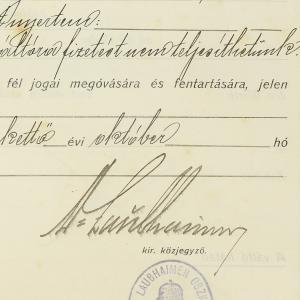 váltóra fizetést nem teljesíthetünk.
fél jogai megóvására és fentartására, jelen
kettő évi október hó
Dr Laubhaimer
kir. közjegyző.
LAUBHAIMER